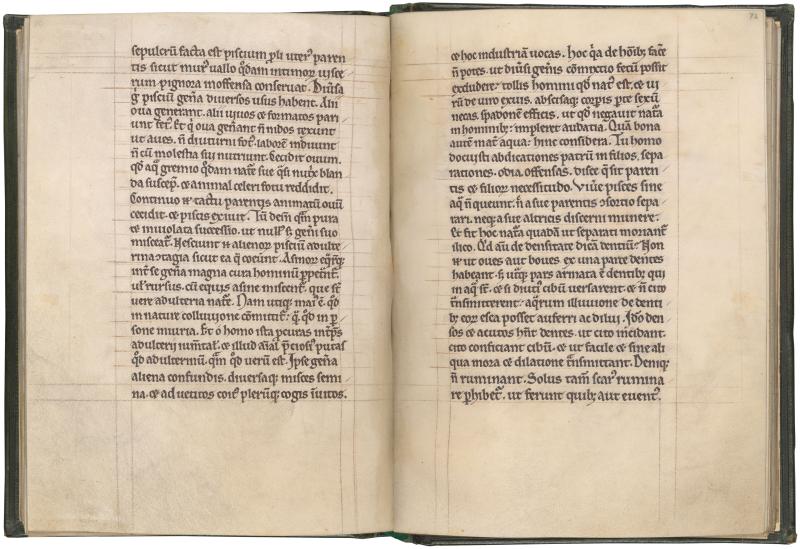 sepulcrū facta est pisciū p̄li uter᷒ paren
tis sicut mur᷒ uallo q̄dam intimoꝝ uisce
rum pignora inoffensa conseruat. Diu̓sa
ḡ pisciū geña diuersos usus habent. Alii
oua generant. alii uiuos ⁊ formatos pari
unt fet᷒. Et q̄ oua geñant ñ nidos texunt
ut aues. ñ diuturni fot᷒ laborē induunt
ñ cū molestia sui nutriunt. Cecidit ouum.
qd̓ aq̄ gremio q̄dam nat̄e sue q̄si nut̓x blan
da suscep̄. ⁊ animal celeri fotu reddidit.
Continuo ꝫ tactu parentis animatū ouū
cecidit. ⁊ piscis exiuit. Tū dem̄ q̄m pura
⁊ inuiolata successio. ut null᷒ s; geñi suo
misceat̄. Nesciunt ꝫ alienoꝝ pisciū adulte
rina ꝯtagia sicut ea q̄ coeunt. Asinoꝝ eq̄rq;
int̓ se geña magna cura hominū ꝑpet̄nt.
ul̓ rursus. cū equis asine miscent̄. que st̄
uere adulteria nat̄e. Nam utiq; mai᷒ ē. q̄d
in nature colluuione cōmittit̄. q̄ q̄d in ꝑ
sone iniuria. Et o homo ista ꝓcuras int̓ꝑs
adulterii ium̄tal̓. ⁊ illud aīal p̄cios᷒ putas
q̄d adulterinū. q̄m q̄d uerū est. Ipse geña
aliena confundis. diuersaq; misces semi
na. ⁊ ad uetitos coit᷒ pleruq; cogis īuitos.
72
⁊ hoc industriā uocas. Hoc q̓a de hoīb; face̓
ñ potes. ut diu̓si geñis cōmixtio fetū possit
excludere. tollis homini qd̓ nat̄ est. ⁊ ui
rū de uiro exuis. abscisaq; corꝑis ꝑte sexū
necas. spadonē efficis. ut qd̓ negauit nat̄a
in hominib;. impleret audatia. Quā bona
autē mat̓ aqua. hinc considera. Tu homo
docuisti abdicationes patrū in filios. sepa
rationes. odia. offensas. disce q̄ sit paren
tis ⁊ filioꝝ necessitudo. Viue̓ pisces sine
aq̄ ñ queunt. ñ a sue parentis ꝯsortio sepa
rari. neq; a sue altricis discerni munere.
Et fit hoc nat̄a quadā ut separati moriant̄
ilico. Q̓d aū de densitate dicā dentiū. Non
ꝫ ut oues aut boues. ex una parte dentes
habeant. s; ut̓q; pars armata ē dentib; quia
in aq̄ st̄. ⁊ si diuti᷒ cibū uersarent. ⁊ ñ cito
t̓nsmitterent. aq̄rum illuuione de denti
b; eoꝝ esca posset auferri ac dilui. Id̓o den
sos ⁊ acutos hn̄t dentes. ut cito incidant.
cito conficiant cibū. ⁊ ut facile ⁊ sine ali
qua mora ⁊ dilatione t̓nsmittant. Deniq;
ñ ruminant. Solus tam̄ scar᷒ rumina
re ꝑhibet̄. ut ferunt quib; aut euent᷒.